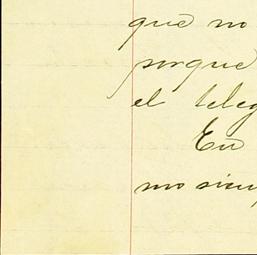 que no
porque
el teleg
En
mo siem